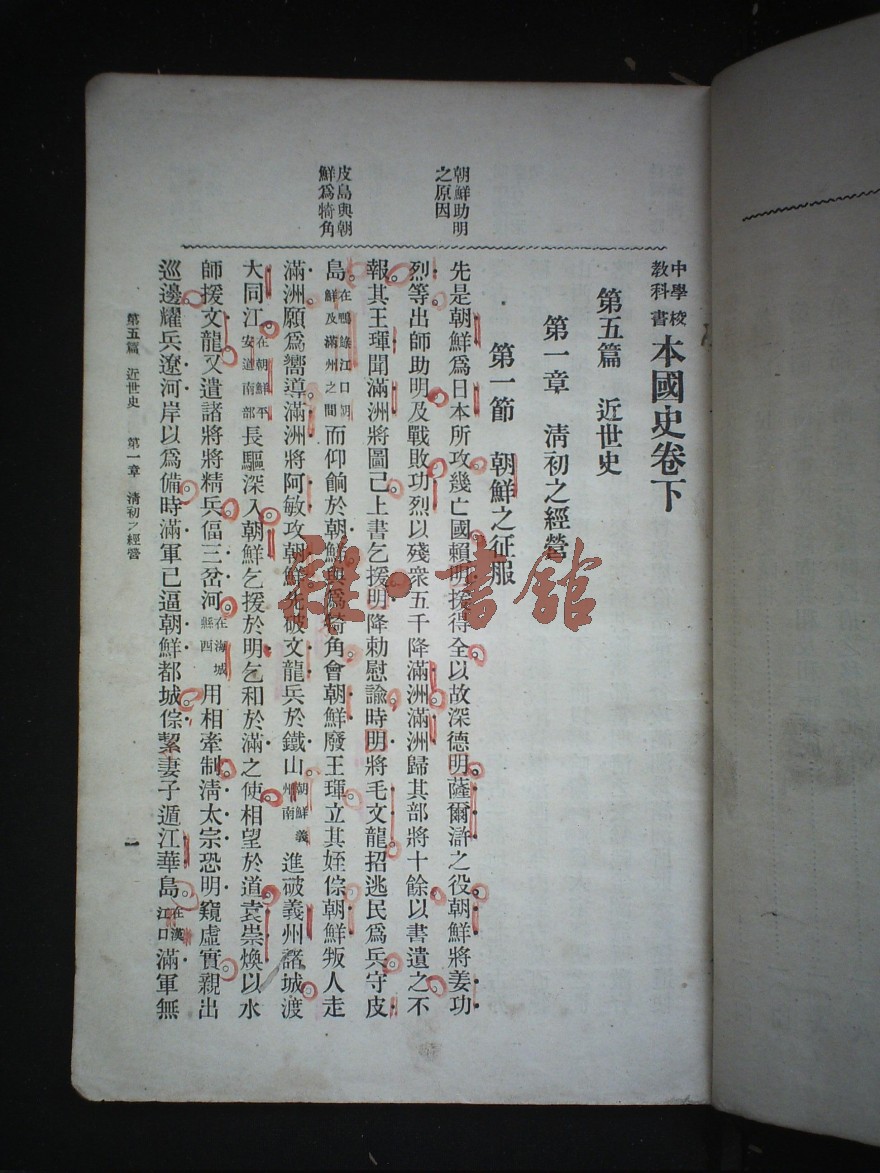 中學校教科書 本國史卷下
第五篇 近世史
第一章 淸初之經營
第一節 朝鮮之征服
朝鮮助明之原因
先是朝鮮爲日本所攻幾亡國賴明援得全以故深德明薩爾滸之役朝鮮將姜功
烈等出師助明及戰敗功烈以殘衆五千降滿洲滿洲歸其部將十餘以書遺之不
報其王琿聞滿洲將圖己上書乞援明降勅慰諭時明將毛文龍招逃民爲兵守皮
皮島與朝鮮爲犄角
島在鴨綠江口朝鮮及滿州之間而仰餉於朝鮮與爲犄角會朝鮮廢王琿立其姪倧朝鮮叛人走
滿洲願爲嚮導滿洲將阿敏攻朝鮮先破文龍兵於鐵山朝鮮義州南進破義州諸城渡
大同江在朝鮮平安道南部長驅深入朝鮮乞援於明乞和於滿之使相望於道袁崇煥以水
師援文龍又遣諸將將精兵偪三岔河在海城縣西用相牽制淸太宗恐明窺虛實親出
巡邊耀兵遼河岸以爲備時滿軍已逼朝鮮都城倧絜妻子遁江華島在漢江口滿軍無
第五篇 近世史 第一章 淸初之經營 一
雅·書館